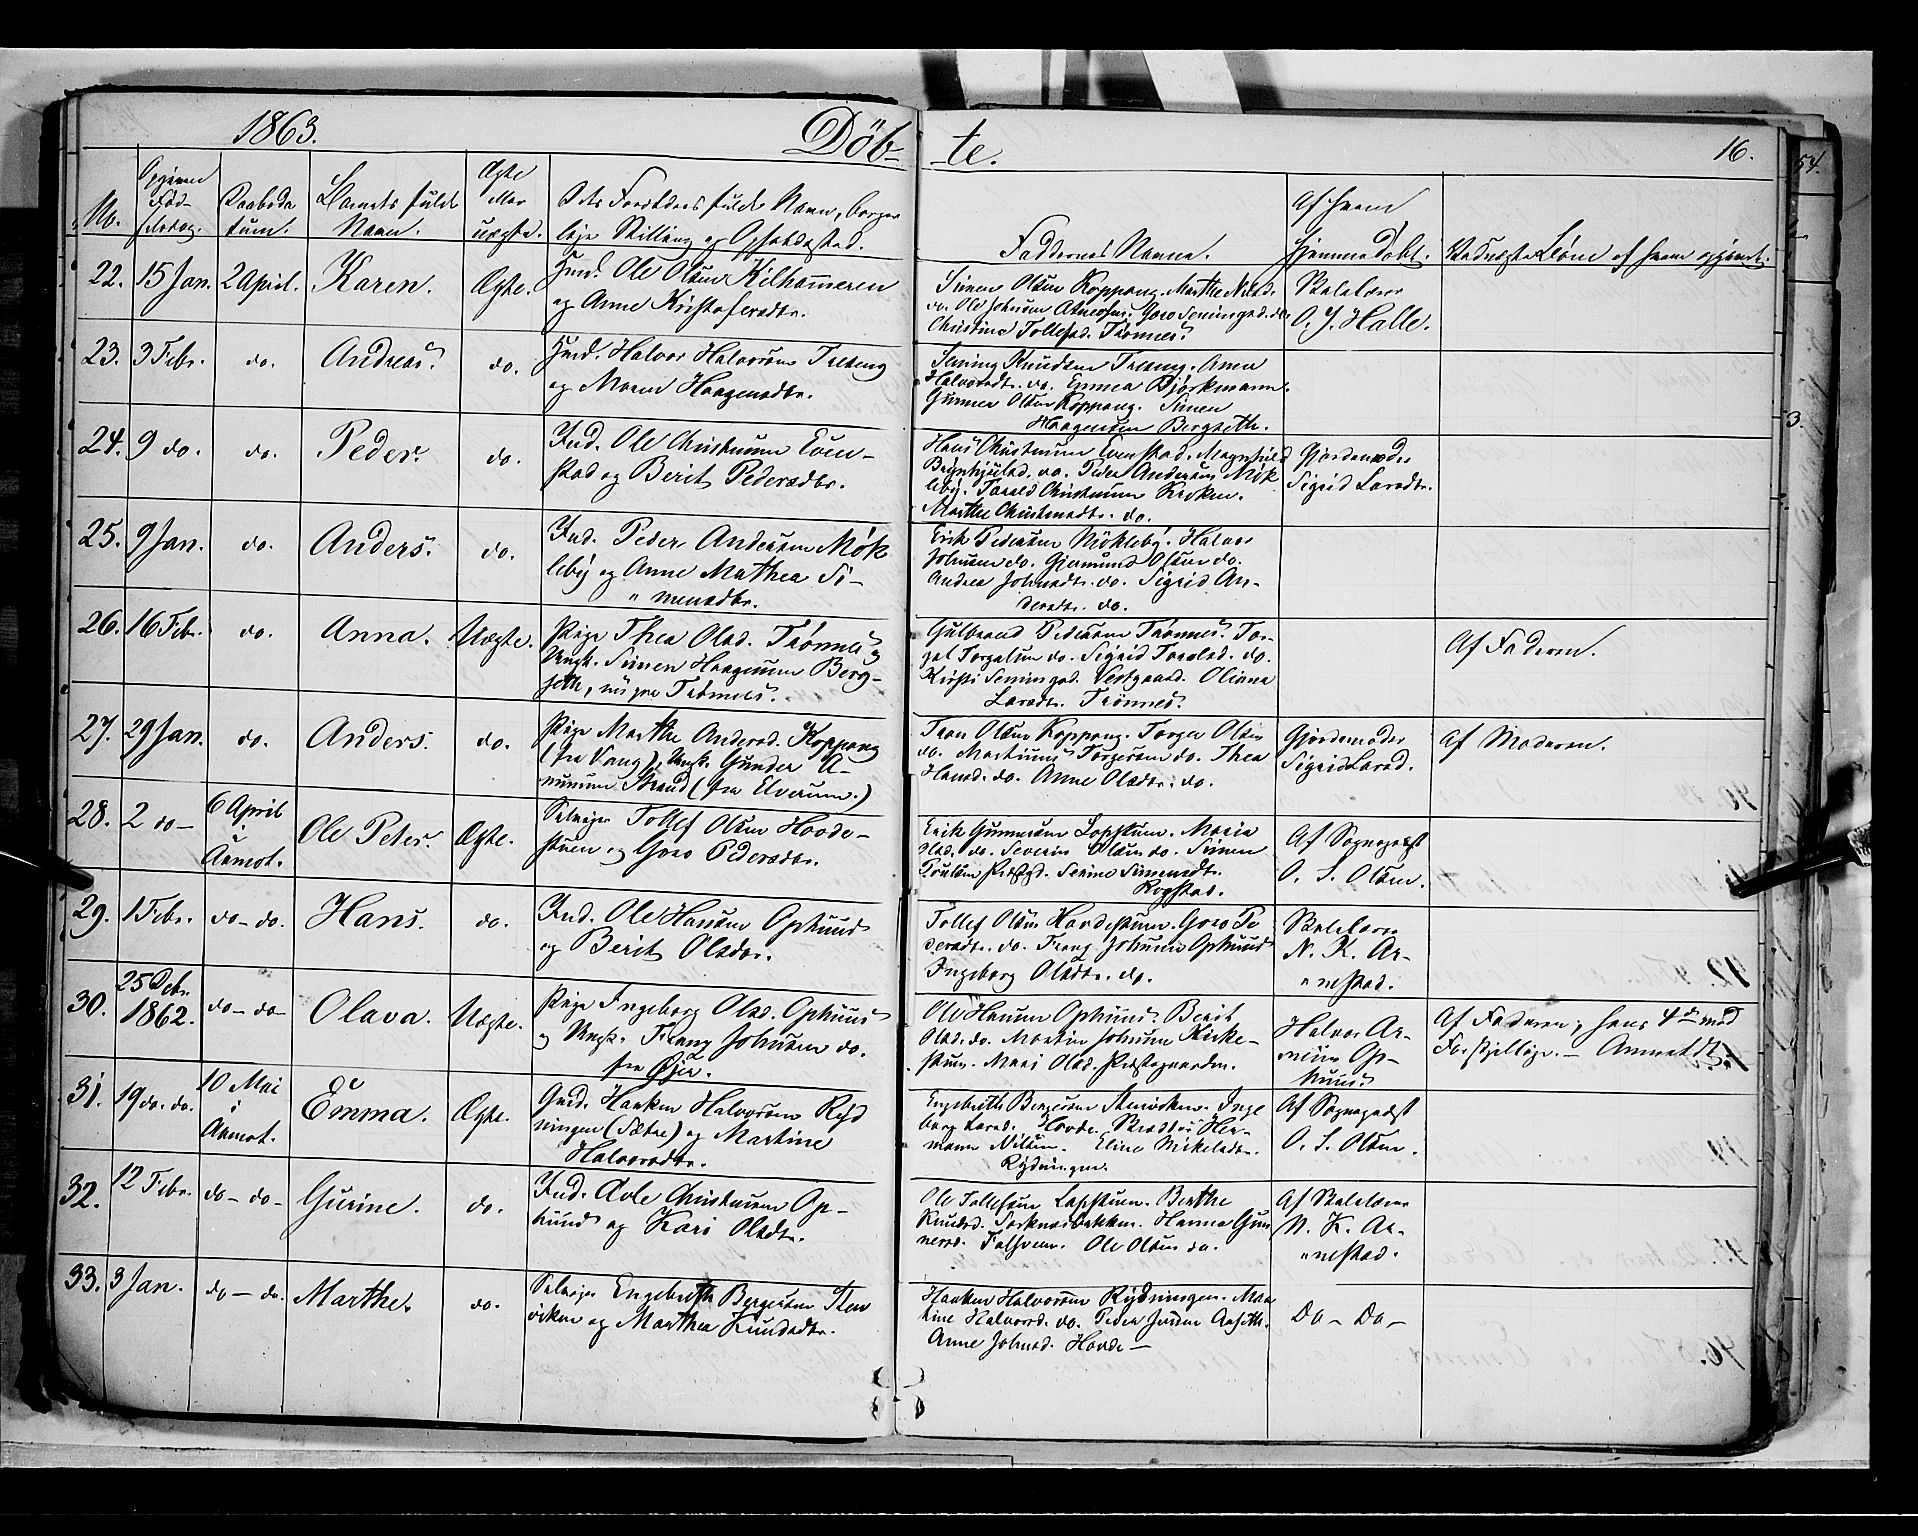 1863.
Döb-
-te.
16.
54.
No.
Opgiven Fød-
selsdag.
Daabsda
tum.
Barnets fulde
Navn.
Ægte
eller
uægte.
Dets Forældres fulde Navn, borger
lige Stilling og Opholdssted.
Faddernes Navne.
Af hvem
hjemmedøbt.
22. 15 Jan. 2 April. Karen. Ægte.
Ole Olsen Kilhammeren
og Anne Kristofersdtr.
Simen Olsen Koppang. Marthe Nilsd.
do. Ole Johnsen Atneosen. Goro Semingsd. do.
Christine Tollefsd. Trønnes.
Skolelærer
O. J. Halle.
23. 3 Febr. do. Andreas. do.
Halvor Halvorsen Treeng
og Maren Haagensdtr.
Seming Knudsen Treeng. Anne
Halvorsdtr. do. Emma Bjørkmann.
Gunner Olsen Koppang. Simen
Haagensen Bergseth.
24. 9 do. do. Peder. do.
Ind. Ole Christensen Even-
stad og Berit Pedersdtr.
Hans Christensen Evenstad. Magnhild
do. Peder Andersen Møk
leby. Tarald Christensen Kroken.
Marthe Christensdtr. do.
Gjordemoder
Sigrid Larsdtr.
25. 9 Jan. do. Anders. do.
Ind. Peder Andersen Møk
leby og Anne Mathea Si-
" mensdtr.
Erik Pedersen Møkleby. Halvor
Johnsen do. Gjermund Olsen do.
Andrea Johnsdtr. do. Sigrid An-
dersdtr. do.
26. 16 Febr. do. Anna. Uægte.
Pige Thea Olsd. Trønnes og
Ungk. Simen Haagensen Berg-
seth, nu paa Trønnes.
Gulbrand Pedersen Trønnes. Tor-
gal Torgalsen do. Sigrid Torolsd. do.
Kirsti Semingsd. Vestgaard. Oliana
Larsdtr. Trønnes.
Af Faderen.
27. 29 Jan. do. Anders. do.
Pige Marthe Andersd. Koppang
(fra Vang), Ungk. Gunder A-
mundsen Strand (fra Elverum.)
Iver Olsen Koppang. Torger Olsen
do. Martinus Torgersen do. Thea
Hansd. do. Anne Olsdtr. do.
Gjordemoder
Sigrid Larsd.
Af Moderen.
28. 2 do-
6 April
i
Aamot.
Ole Peter. Ægte.
Selveier Tollef Olsen Hovde-
stuen og Goro Pedersdtr.
Erik Gunnersen Løpstuen. Marie
Olsd. do. Severin Olsen do. Simen
Poulsen Præstgd. Serine Simensdtr.
Rogstad.
Af Sognepræst
O. S. Olsen.
29. 1 Febr. do - do. Hans. do.
Ind. Ole Hansen Ophuus
og Berit Olsdtr.
Tollef Olsen Hovdestuen. Goro Pe
dersdtr. do. Franz Johnsen Ophuus
Ingeborg Olsdtr. do.
Skolelærer
N. K. Ar-
" nestad.
30.
25 Debr.
1862.
do - do - Olava. Uægte.
Pige Ingeborg Olsd. Ophuus
og Ungk. Franz Johnsen do.
fra Øier.
Ole Hansen Ophuus. Berit
Olsd. do. Martin Johnsen Kirke-
stuen. Mari Olsd. Præstegaarden.
Halvor Ar-
nesen Op-
huus.
Af Faderen, hans 4de med
forskjellige. -
31. 19 do. do.
10 Mai
i
Aamot.
Emma. Ægte.
Gmd. Haaken Halvorsen Ryd
ningen (Sætre) og Martine
Halvorsdtr.
Engebreth Bergersen Stenviken. Inge
borg Larsd. Hovde. Skrædder Her-
mann Nilsen. Eline Mikelsdtr.
Rydningen.
Af Sognepræst
O. S. Olsen.
32. 12 Febr. do - do - Gurine. do.
Ind. Avle Christensen Op-
huus og Kari Olsdtr.
Ole Tollefsen Løpstuen. Berthe
Knudsd. Søknesbakken. Hanna Gun
nersd. Ole Olsen do.
Af Skolelærer
N. K. Ar-
" nestad.
33. 3 Jan. do - do. Marthe. do.
Selveier Engebreth Bergersen Sten
viken og Marthea Knudsdtr.
Haaken Halvorsen Rydningen. Mar
tine Halvorsd. do. Peder Jensen Aaseth.
Anne Johnsd. Hovde -
Do - Do -